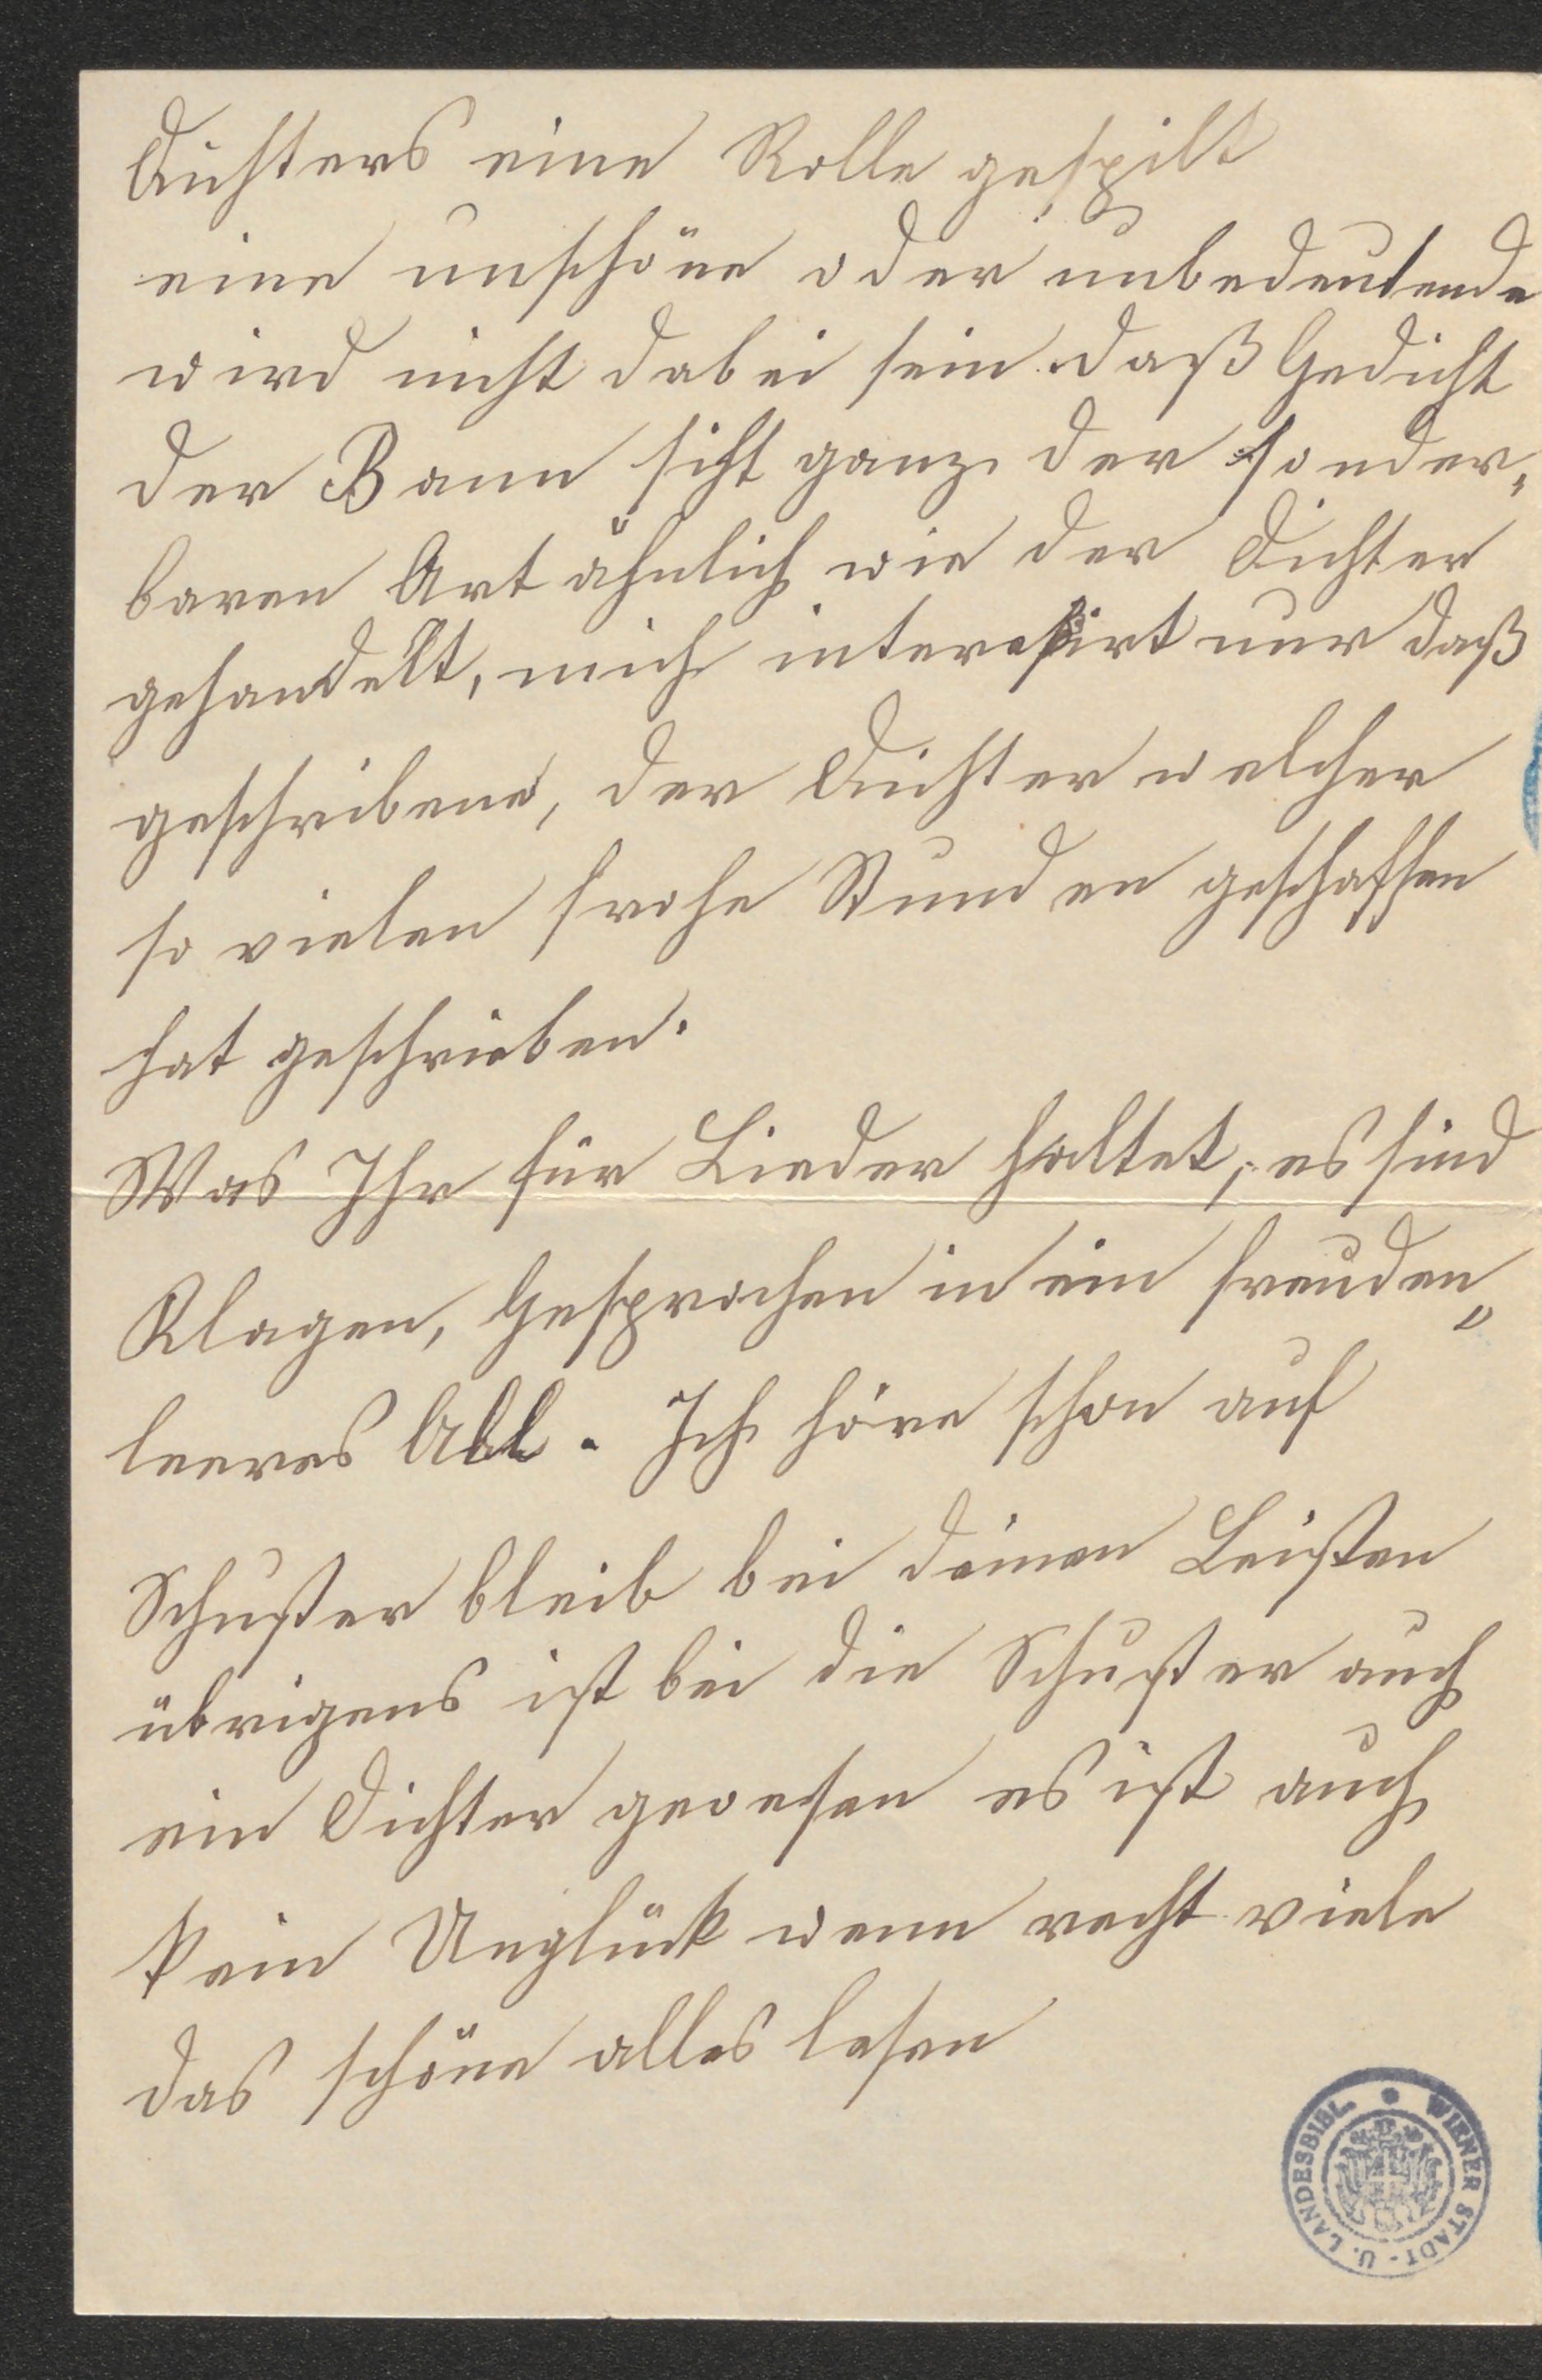 Dichters eine Rolle gespilt
eine unschöne oder unbedeutende
wird nicht dabei sein. daß Gedicht
der Bann siht ganz der sonder„
baren Art ähnlich wie der Dichter
gehandelt, mich interesirt nur daß
geschribene, der Dichter welcher
so vielen frohe Stunden geschaffen
hat geschrieben.
Was Ihr für Lieder haltet, es sind
Klagen, Gesprochen in ein freuden„
leeres All. Ich höre schon auf
Schuster bleib bei deinen Leisten
übrigens ist bei die Schuster auch
ein Dichter gewesen es ist auch
kein Unglück wenn recht viele
das schöne alles lesen
WIENER STADT- U. LANDESBIBL.